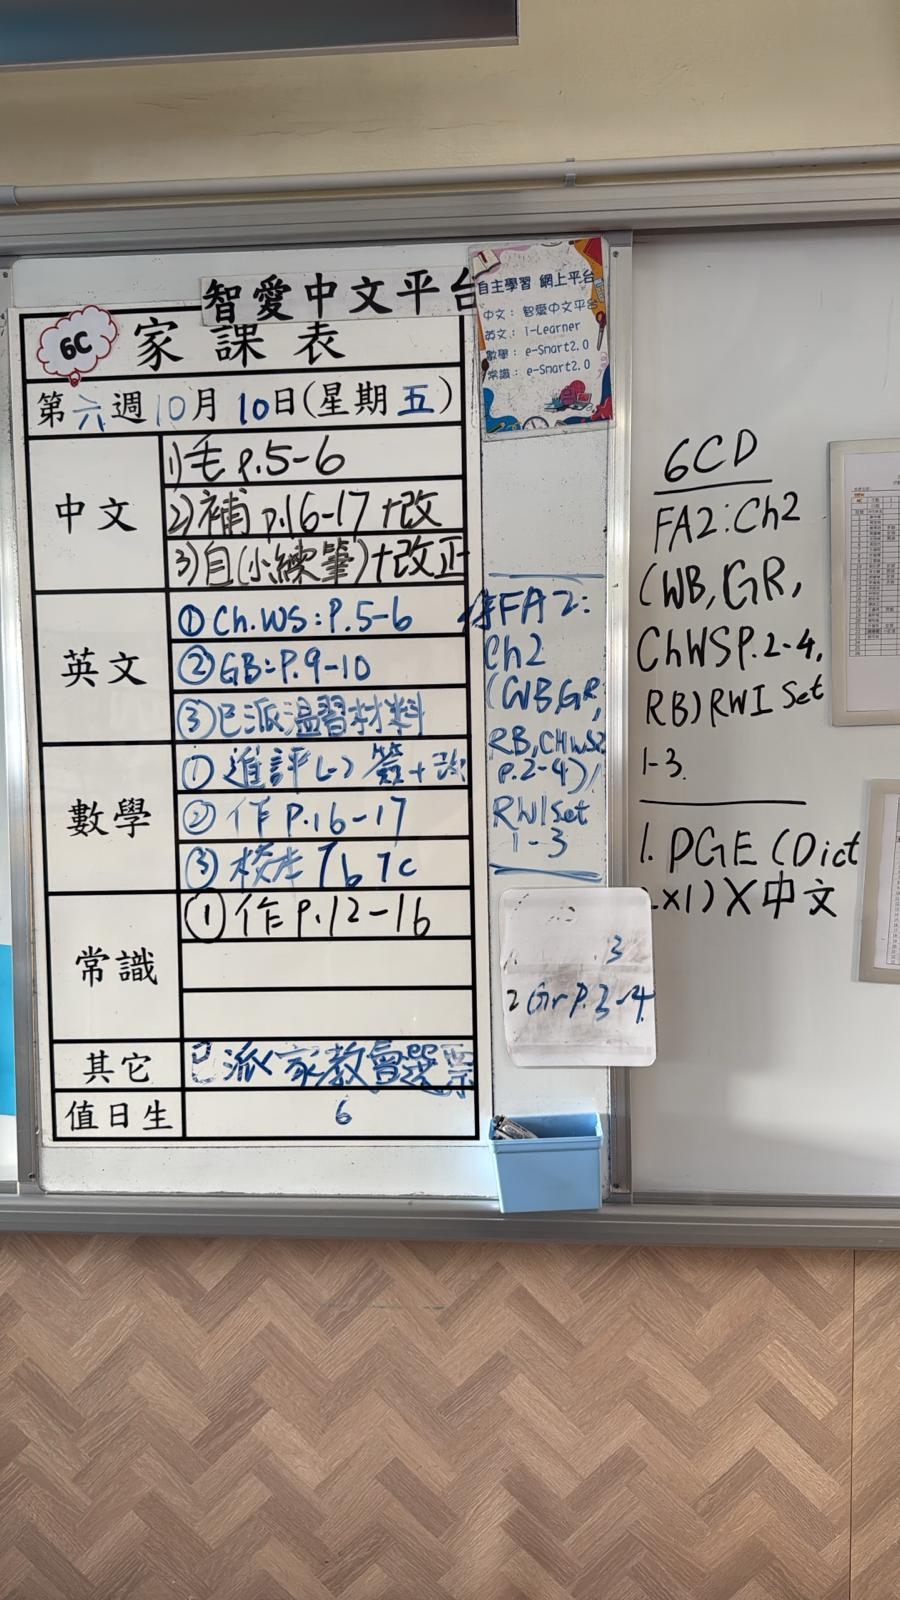 智愛中文平台
6C
家課表
第六週10月10日(星期五)
中文
1)毛 p.5-6
2)補 p.16-17 +改
3)自(小練筆)+改正
英文
① Ch.WS: P.5-6
② GB: P.9-10
③ 已派溫習材料
數學
① 進評(-) 簽+改
② 作 P.16-17
③ 校本 7b 7c
常識
① 作 P.12-16
其它
已派家教會選票
值日生
6
自主學習 網上平台
中文: 智愛中文平台
英文: i-Learner
數學: e-Smart2.0
常識: e-Smart2.0
FA2:
Ch2
(WB,GR,
RB,CHWS
P.2-4)/
RWI Set
1-3
3
2 Gr P.3-4
6CD
FA2: Ch2
(WB, GR,
ChWS P.2-4,
RB) RWI Set
1-3.
1. PGE (Dict
x1) X 中文